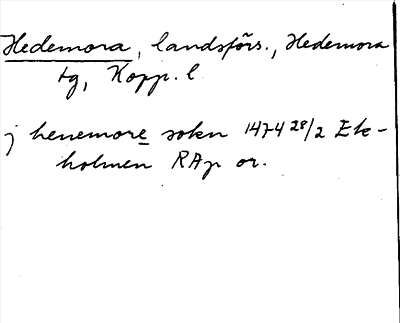 Hedemora, landsförs., Hedemora
tg, Kopp. l
j henemore sokn 1474 28/2 Ek-
holmen RAp or.